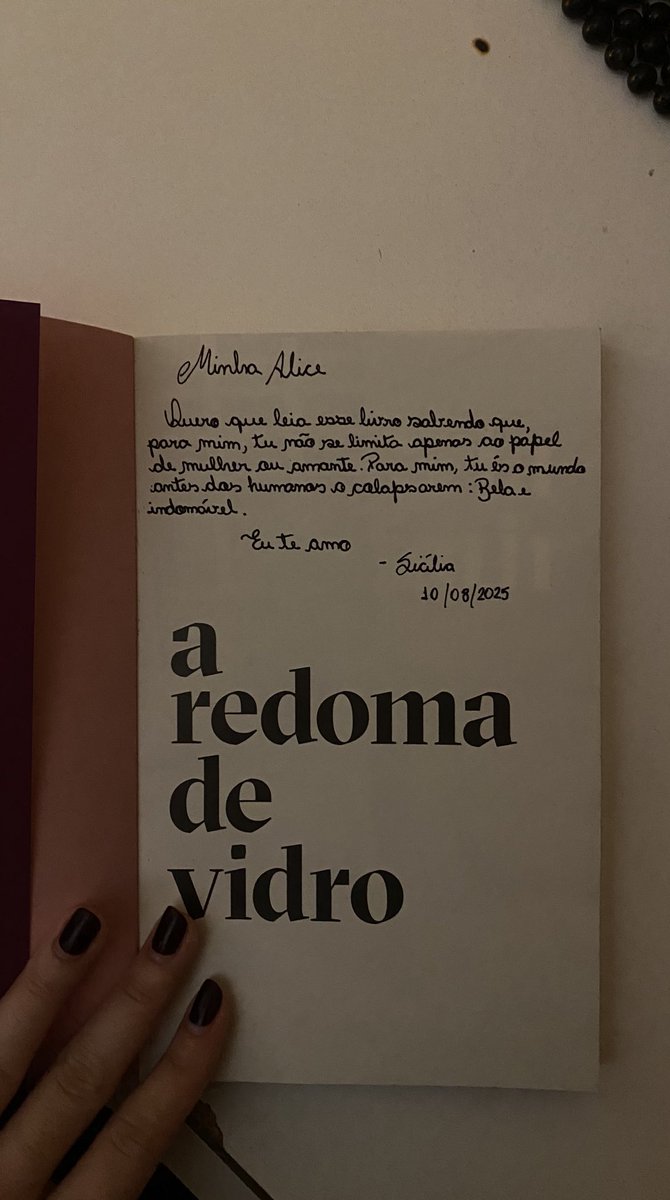 Minha Alice
Quero que leia esse livro sabendo que,
para mim, tu não se limita apenas ao papel
de mulher ou amante. Para mim, tu és o mundo
antes dos humanos o colapsarem: Bela e
indomável.
Eu te amo
- Sicília
10/08/2025
a
redoma
de
vidro